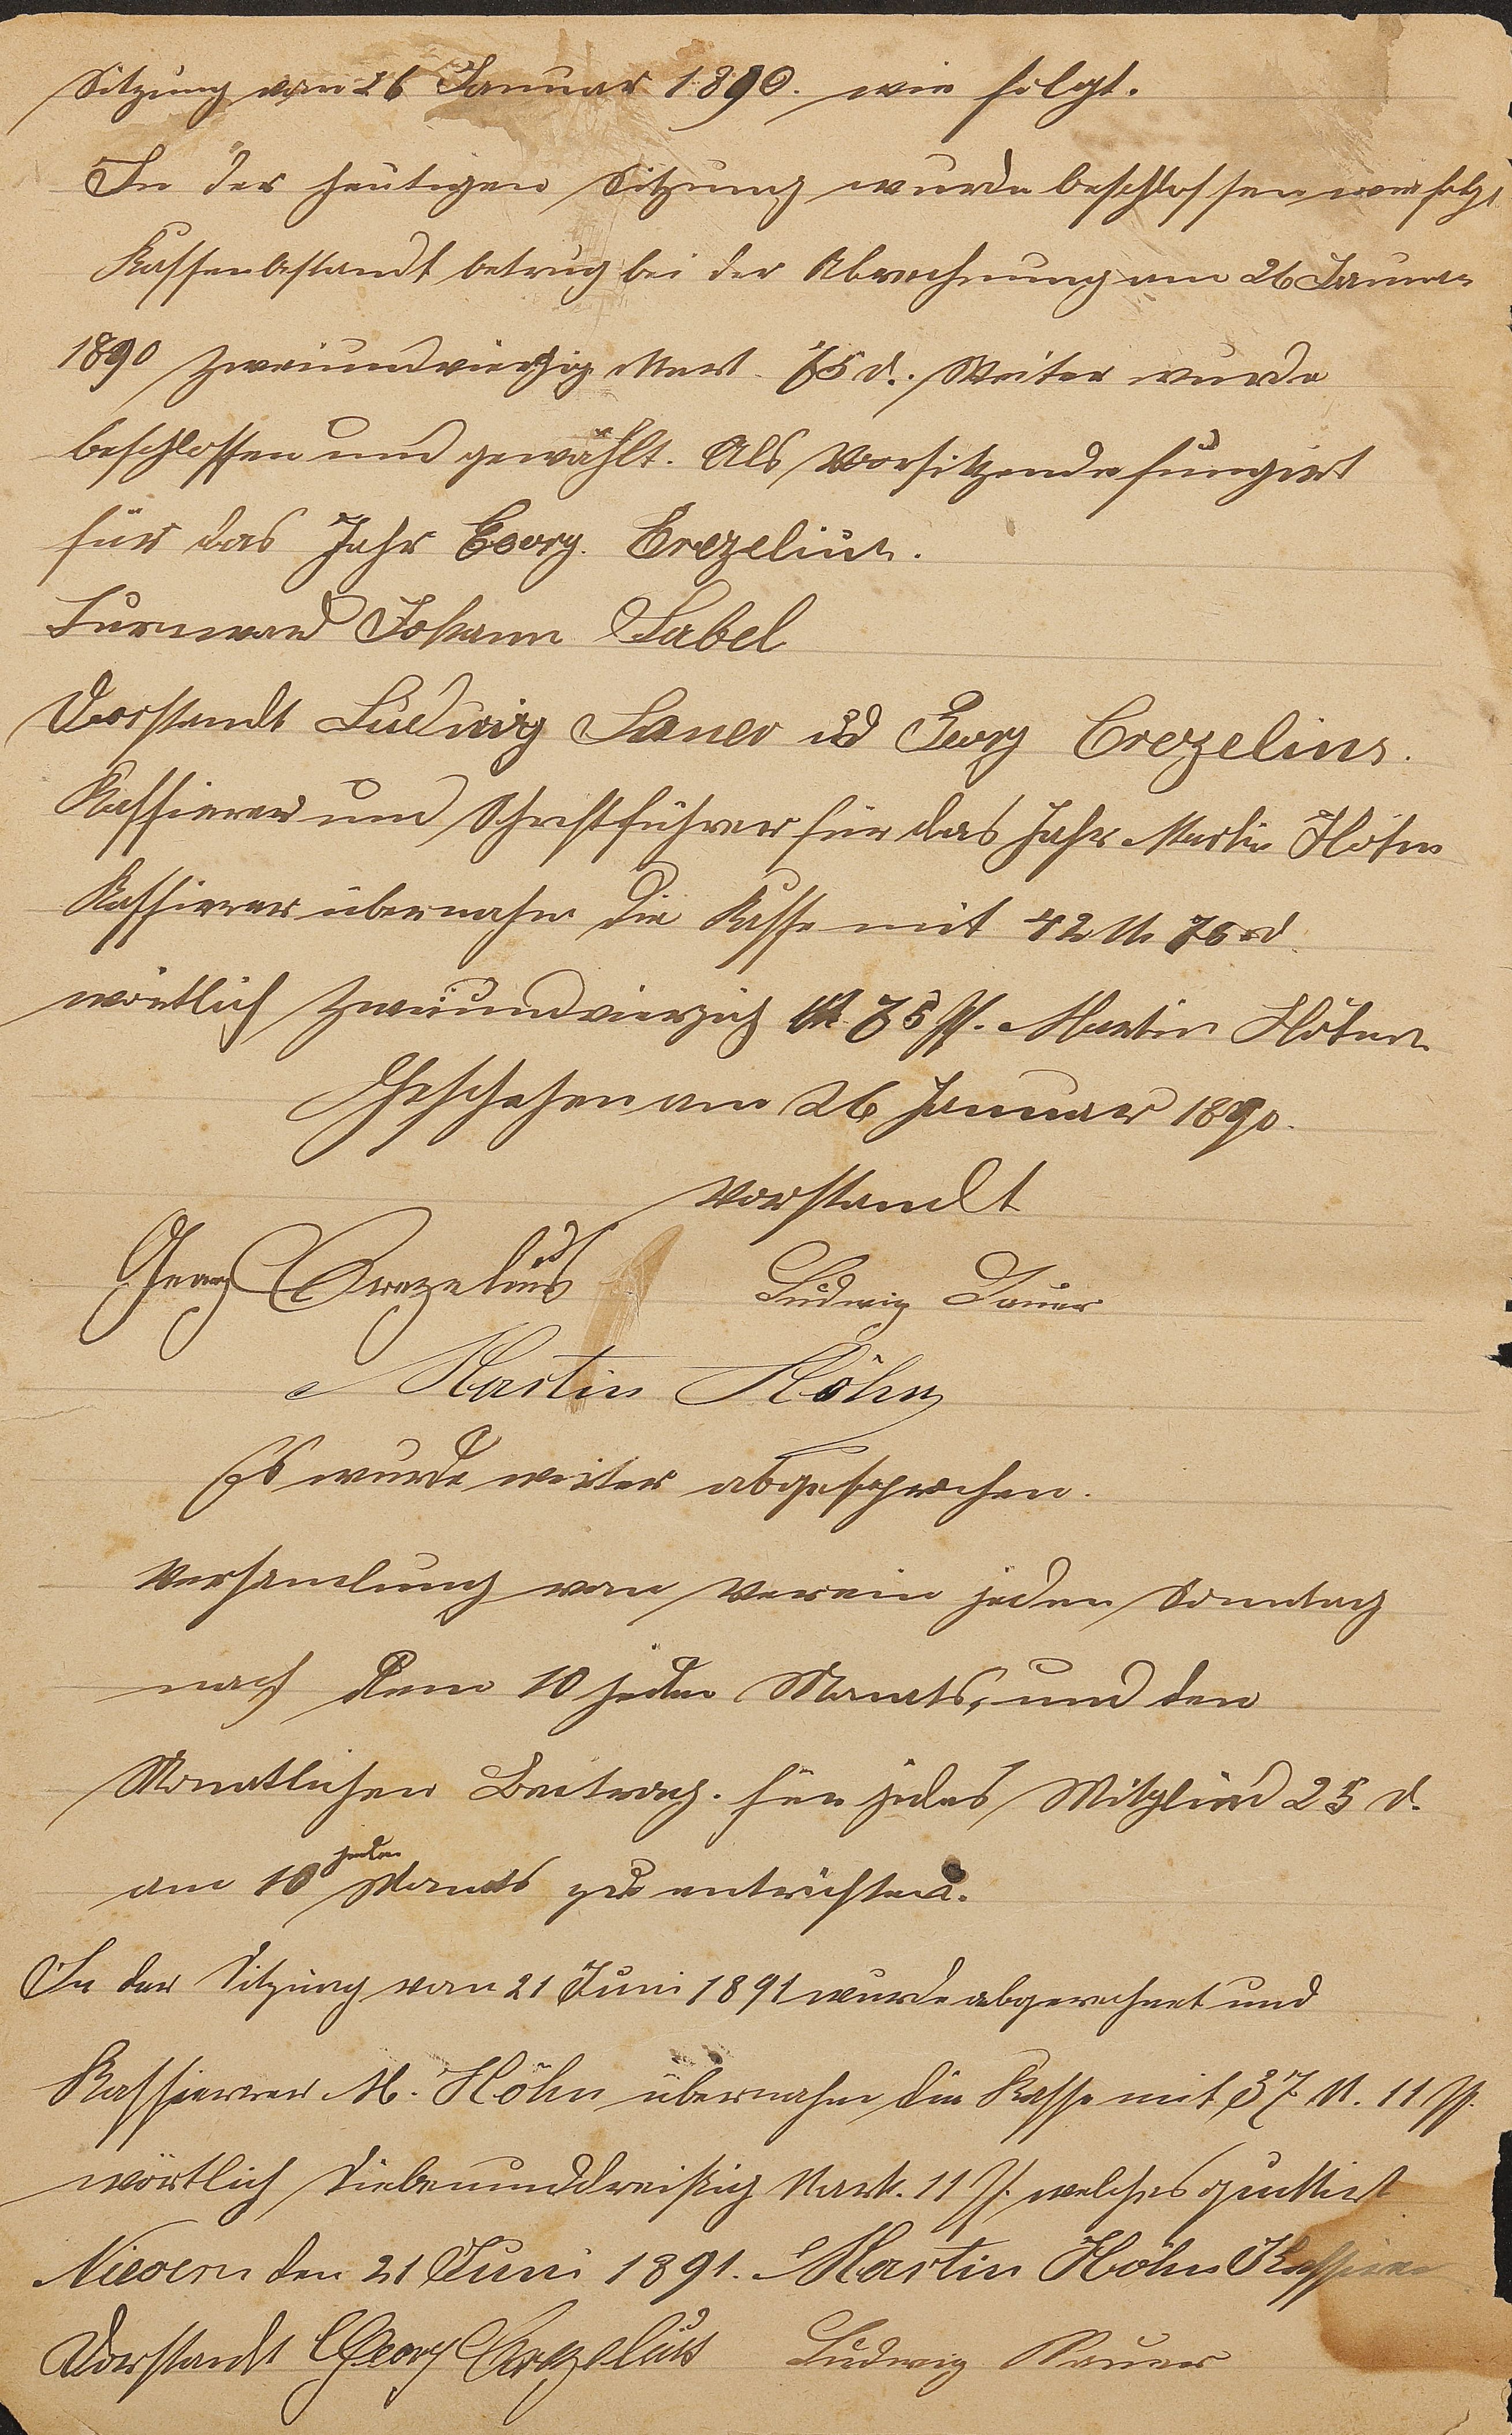 Sitzung vom 26 Januar 1890. wie folgt.
In der heutigen Sitzung wurde beschlossen wie folgt
Kassenbestandt betrug bei der Abrechnung am 26 Januar
1890 zweiundvierzig Mark 75 d. Weiter wurde
beschlossen und gewählt. Als Vorsitzende fungirt
für das Jahr Georg Crezelius.
Turnward Johann Sabel
Vorstandt Ludwig Sauer ud Georg Crezelius.
Kassierer und Schriftführer für das Jahr Martin Höhn
Kassierer übernahm die Kasse mit 42 M 75 d
wörtlich Zweiundvierzig M 75 Pf. Martin Höhn
Geschehen am 26 Januar 1890.
Vorstandt
Georg Crezelius Ludwig Sauer
Martin Höhn
Es wurde weiter abgesprochen.
Versamlung vom Verein jeden Sonntag
nach dem 10 jeden Monats, und den
Monatlichen Beitrag. für jedes Mitglied 25 d.
am 10 jeden Monats zu entrichten.
In der Sitzung vom 21 Juni 1891 wurde abgerechnet und
Kassierer M. Höhn übernahm die Kasse mit 37 M. 11 Pf.
wörtlich Siebenunddreißig Mark. 11 Pf. welches quittirt
Nievern den 21 Juni 1891. Martin Höhn Kassierer
Vorstandt Georg Crezelius Ludwig Sauer